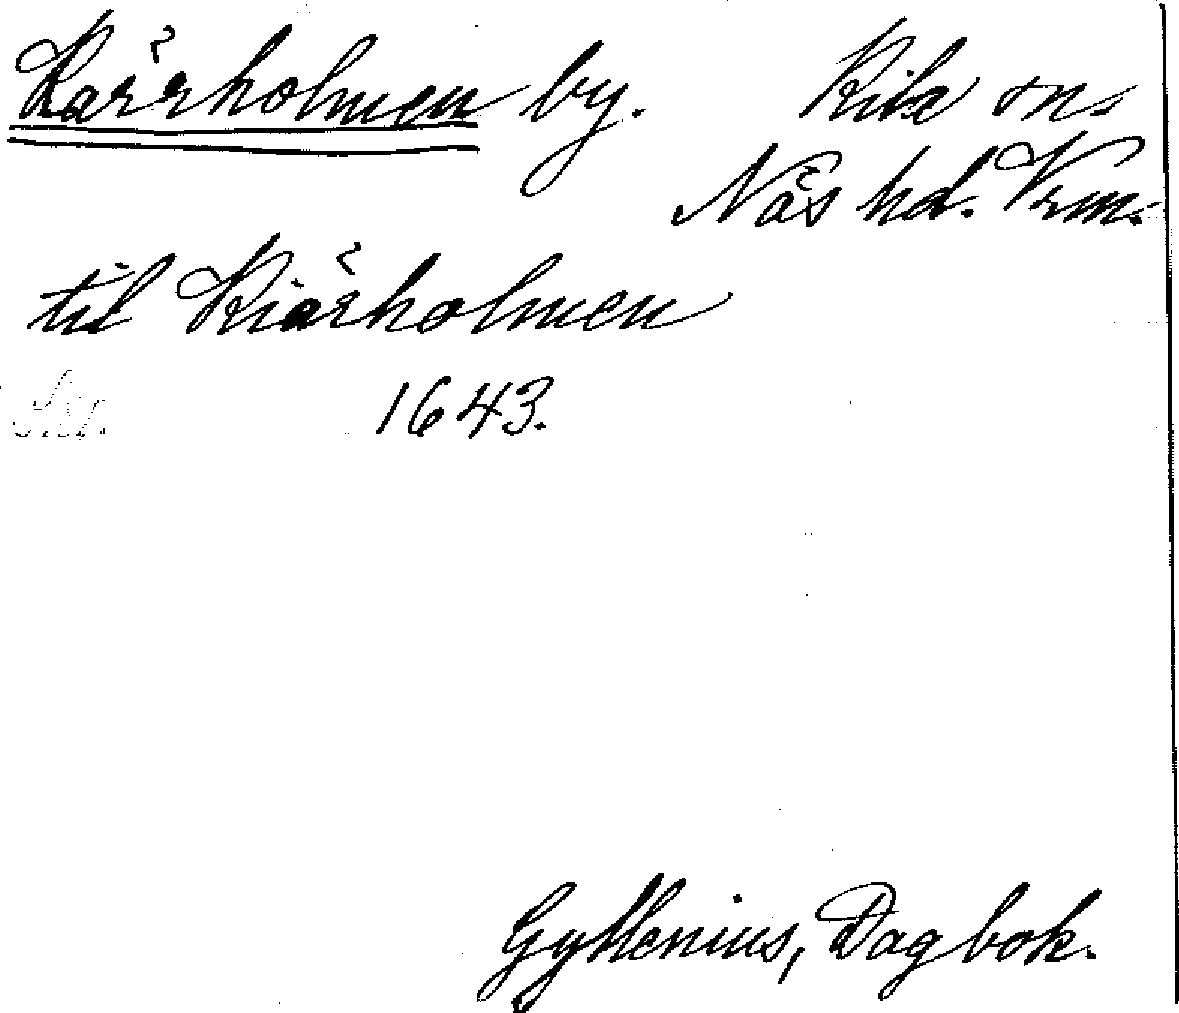 Kärrholmen by. Kila sn.
Näs hd. Vrm.
til Kiärholmen
1643.
Gyllenius, Dagbok.